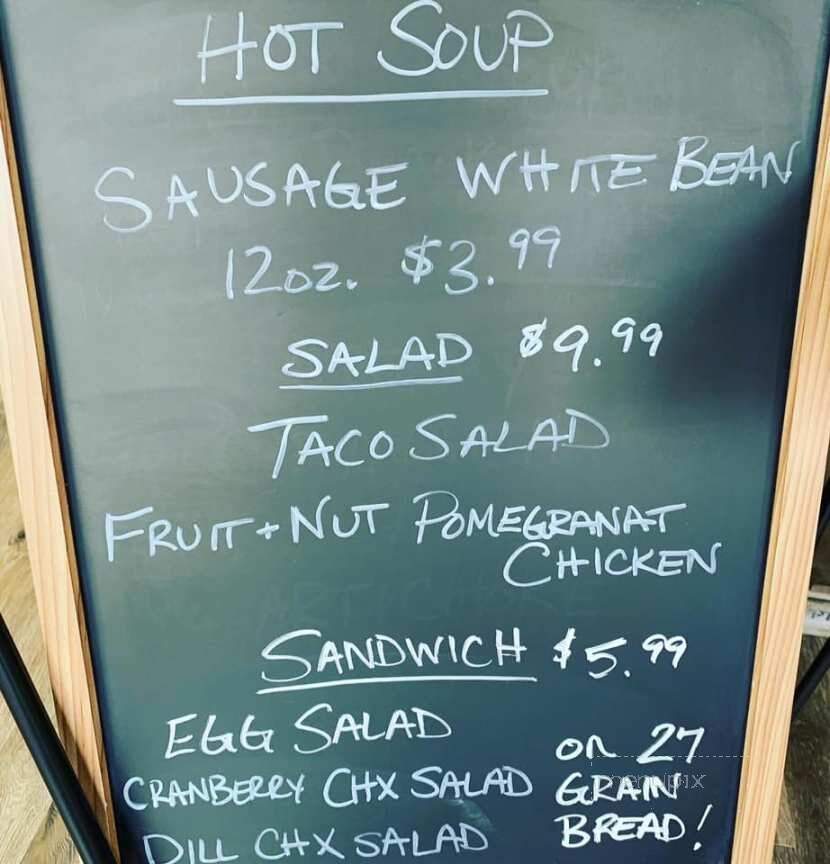 HOT SOUP
SAUSAGE WHITE BEAN
12oz. $3.99
SALAD $9.99
TACO SALAD
FRUIT + NUT POMEGRANAT
CHICKEN
SANDWICH $5.99
EGG SALAD
CRANBERRY CHX SALAD
DILL CHX SALAD
on 27
GRAIN
BREAD!
menupix